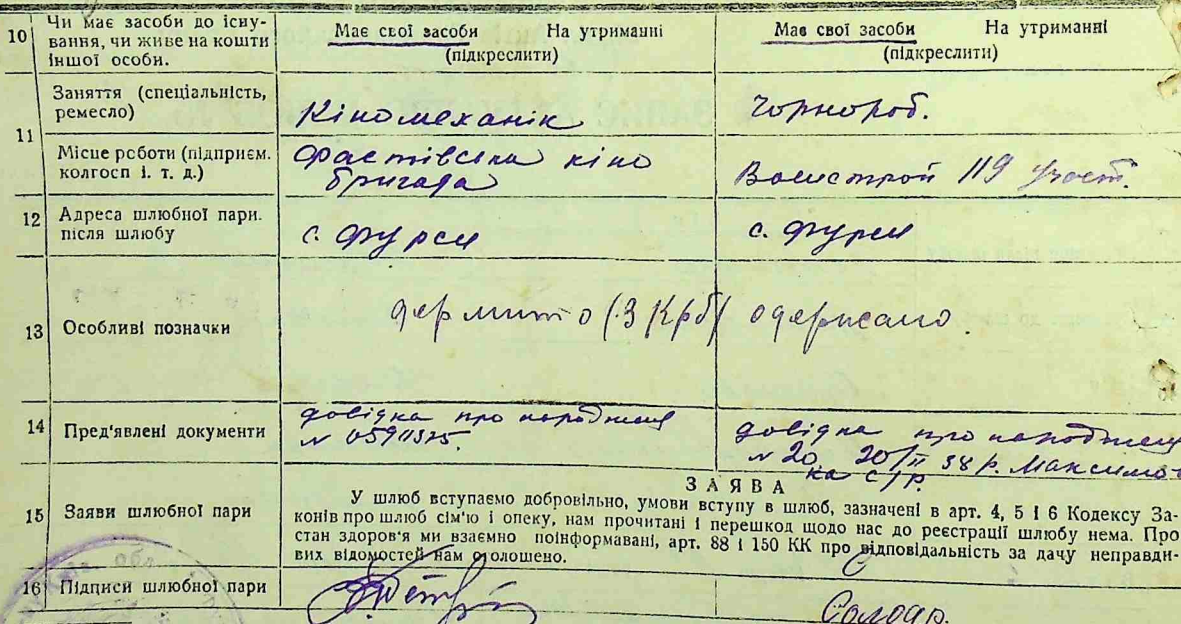 10 Чи має засоби до існування, чи живе на кошти іншої особи. Має свої засоби На утриманні (підкреслити) Має свої засоби На утриманні (підкреслити)
11 Заняття (спеціальність, ремесло) Кіномеханік Чорнороб.
Місце роботи (підприєм. колгосп і. т. д.) Фастівська кіно бригада 119
12 Адреса шлюбної пари. після шлюбу с. Фурси с. Фурси
13 Особливі позначки держмито (3 Крб) одержано.
14 Пред'явлені документи довідка про народження N довідка про народження N 20 20/II 38 р.
ЗАЯВА
15 Заяви шлюбної пари У шлюб вступаємо добровільно, умови вступу в шлюб, зазначені в арт. 4, 5 і 6 Кодексу За-
конів про шлюб сім'ю і опеку, нам прочитані і перешкод щодо нас до реєстрації шлюбу нема. Про
стан здоров'я ми взаємно поінформавані, арт. 88 і 150 КК про відповідальність за дачу неправди-
вих відомостей нам оголошено.
16 Підписи шлюбної пари